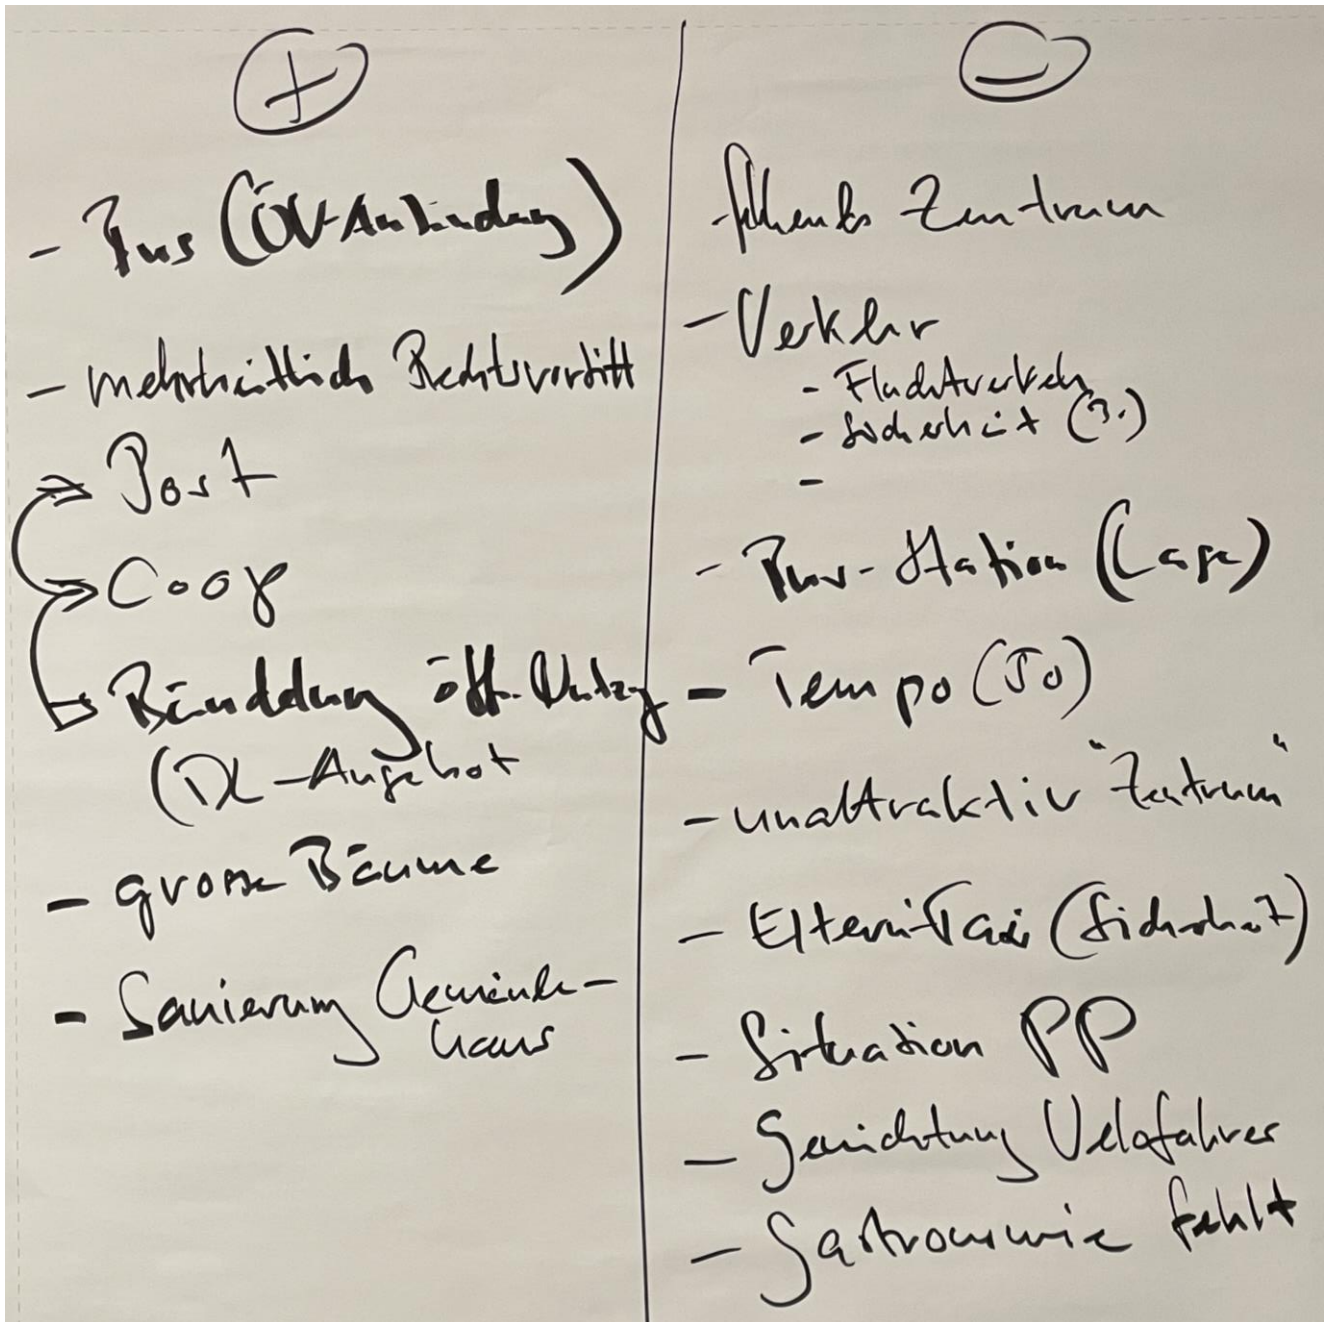 +
- Bus (ÖV-Anbindung)
- mehrheitlich Rechtsvortritt
Post
Coop
Bündelung öff. Nutzg
(DL-Angebot
- grosse Bäume
- Sanierung Gemeinde-
haus
-
- fehlendes Zentrum
- Verkehr
- Fluchtverkehr
- Sicherheit (3.)
-
- Bus-Station (Lage)
- Tempo (50)
- unattraktiv "Zentrum"
- Eltern-Taxi (Sicherheit)
- Situation PP
- Velofahrer
- Gastronomie fehlt